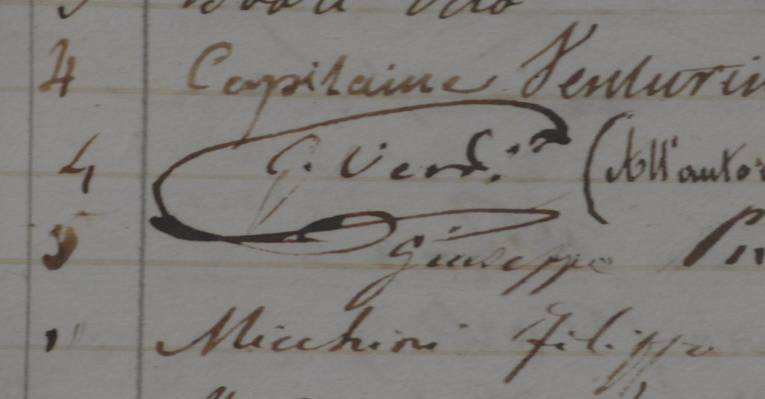 4 Capitaine Venturi
4 G. Verdi (All'auto
3 Giuseppe
" Micchini Filippo